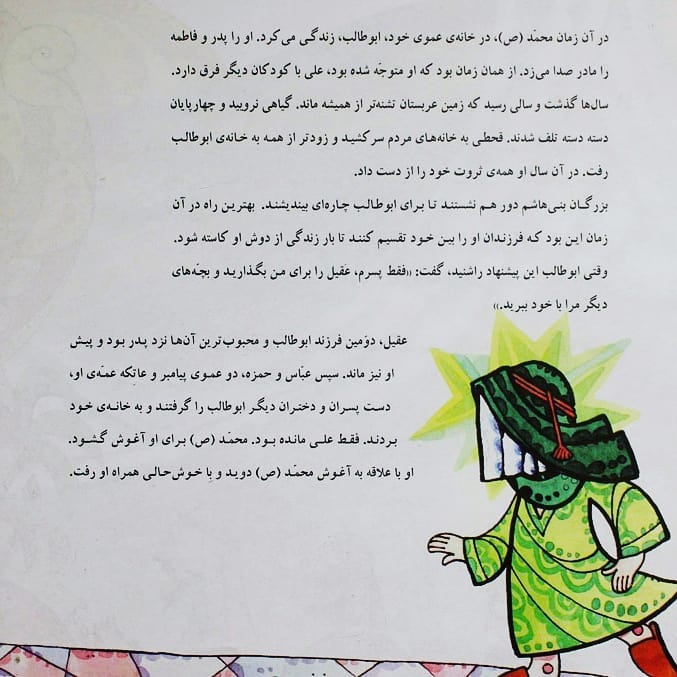 در آن زمان محمّد (ص)، در خانه‌ی عموی خود، ابوطالب، زندگی می‌کرد. او را پدر و فاطمه
را مادر صدا می‌زد. از همان زمان بود که او متوجّه شده بود، علی با کودکان دیگر فرق دارد.
سال‌ها گذشت و سالی رسید که زمین عربستان تشنه‌تر از همیشه ماند. گیاهی نرویید و چهارپایان
دسته دسته تلف شدند. قحطی به خانه‌های مردم سر کشید و زودتر از همه به خانه‌ی ابوطالب
رفت. در آن سال او همه‌ی ثروت خود را از دست داد.
بزرگان بنی‌هاشم دور هم نشستند تا برای ابوطالب چاره‌ای بیندیشند. بهترین راه در آن
زمان این بود که فرزندان او را بین خود تقسیم کنند تا بار زندگی از دوش او کاسته شود.
وقتی ابوطالب این پیشنهاد راشنید، گفت: «فقط پسرم، عَقیل را برای من بگذارید و بچّه‌های
دیگر مرا با خود ببرید.»
عقیل، دوّمین فرزند ابوطالب و محبوب‌ترین آن‌ها نزد پدر بود و پیش
او نیز ماند. سپس عبّاس و حمزه، دو عموی پیامبر و عاتِکه عمّه‌ی او،
دست پسران و دختران دیگر ابوطالب را گرفتند و به خانه‌ی خود
بردند. فقط علی مانده بود. محمّد (ص) برای او آغوش گشود.
او با علاقه به آغوش محمّد (ص) دوید و با خوش‌حالی همراه او رفت.